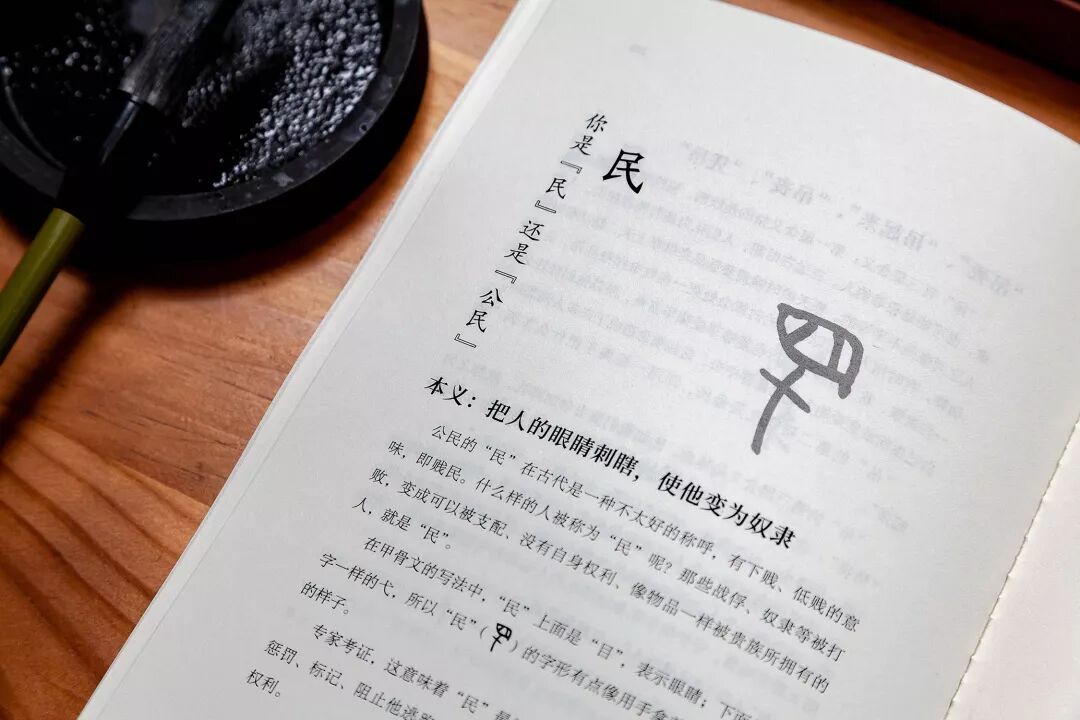 民
你是『民』还是『公民』
本义：把人的眼睛刺瞎，使他变为奴隶
公民的“民”在古代是一种不太好的称呼，有下贱、低贱的意
味，即贱民。什么样的人被称为“民”呢？那些战俘、奴隶等被打
败，变成可以被支配、没有自身权利、像物品一样被贵族所拥有的
人，就是“民”。
在甲骨文的写法中，“民”上面是“目”，表示眼睛；下面
字一样的弋，所以“民”（）的字形有点像用手拿
的样子。
专家考证，这意味着“民”最
惩罚、标记、阻止他逃跑
权利。